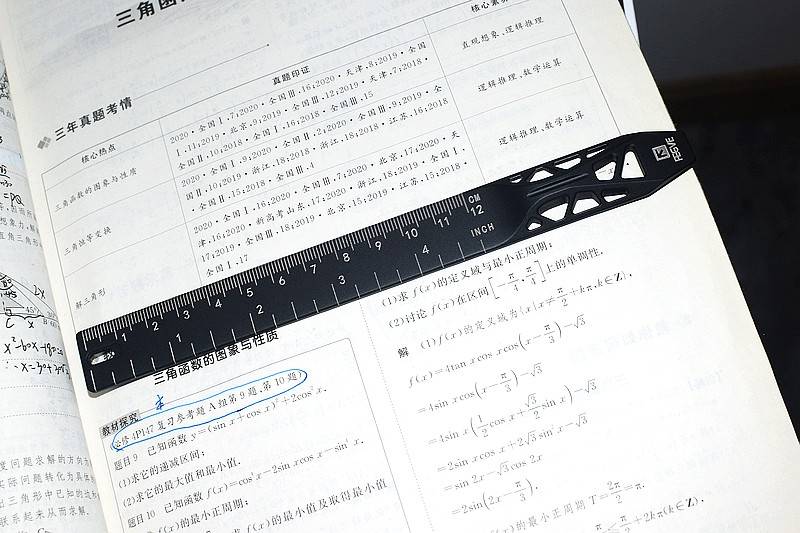 三角函
核心热点
真题印证
核心素养
三年真题考情
三角函数的图象与性质
2020·全国Ⅰ,7;2020·全国Ⅲ,16;2020·天津,8;2019·全国
Ⅰ,11;2019·北京,9;2019·全国Ⅲ,12;2019·天津,7;2018·
全国Ⅱ,10;2018·全国Ⅰ,16;2018·全国Ⅲ,15
直观想象、逻辑推理
三角恒等变换
2020·全国Ⅰ,9;2020·全国Ⅱ,2;2020·全国Ⅲ,9;2019·全
国Ⅱ,10;2019·浙江,18;2018·浙江,18;2018·江苏,16;2018
·全国Ⅱ,15;2018·全国Ⅲ,4
逻辑推理、数学运算
解三角形
2020·全国Ⅰ,16;2020·全国Ⅲ,7;2020·北京,17;2020·天
津,16;2020·新高考山东,17;2020·浙江,18;2019·全国Ⅰ,
17;2019·全国Ⅲ,18;2019·北京,15;2019·江苏,15;2018·
全国Ⅰ,17
逻辑推理、数学运算
1 2 3 4 5 6 7 8 9 10 11 12
CM
INCH
1 2 3 4
三角函数的图象与性质
教材探究
必修4P147复习参考题A组第9题、第10题)
题目9 已知函数y=(sin x+cos x)²+2cos²x.
(1)求它的递减区间;
(2)求它的最大值和最小值.
题目10 已知函数f(x)=cos⁴x-2sin xcos x-sin⁴x.
f(x)的最小正周期;
求f(x)的最小值及取得最小值
(1)求f(x)的定义域与最小正周期;
(2)讨论f(x)在区间[-π/4,π/4]上的单调性.
解 (1)f(x)的定义域为{x|x≠π/2+kπ,k∈Z},
f(x)=4tan xcos xcos(x-π/3)-√3
=4sin xcos(x-π/3)-√3
=4sin x(1/2cos x+√3/2sin x)-√3
=2sin xcos x+2√3sin²x-√3
=sin 2x-√3cos 2x
=2sin(2x-π/3).
的最小正周期T=2π/2=π.
≤π/2+2kπ(k∈Z),
x²-60x-1800=0
∴x=30+30√3
度问题求解的方向
实际问题转化为具体
出三角形中已知的边
联系起来从而求解.